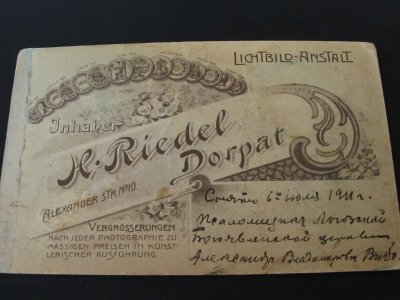 LICHTBILD-ANSTALT
Inhaber
H. Riedel
Dorpat
ALEXANDER STR. No 10.
VERGRÖSSERUNGEN
NACH JEDER PHOTOGRAPHIE ZU
MÄSSIGEN PREISEN IN KÜNST-
LERISCHER AUSFÜHRUNG.
Снято 6го июля 1911 г.
Псаломщикъ
Богоявленской церкви
Александръ Владимировъ